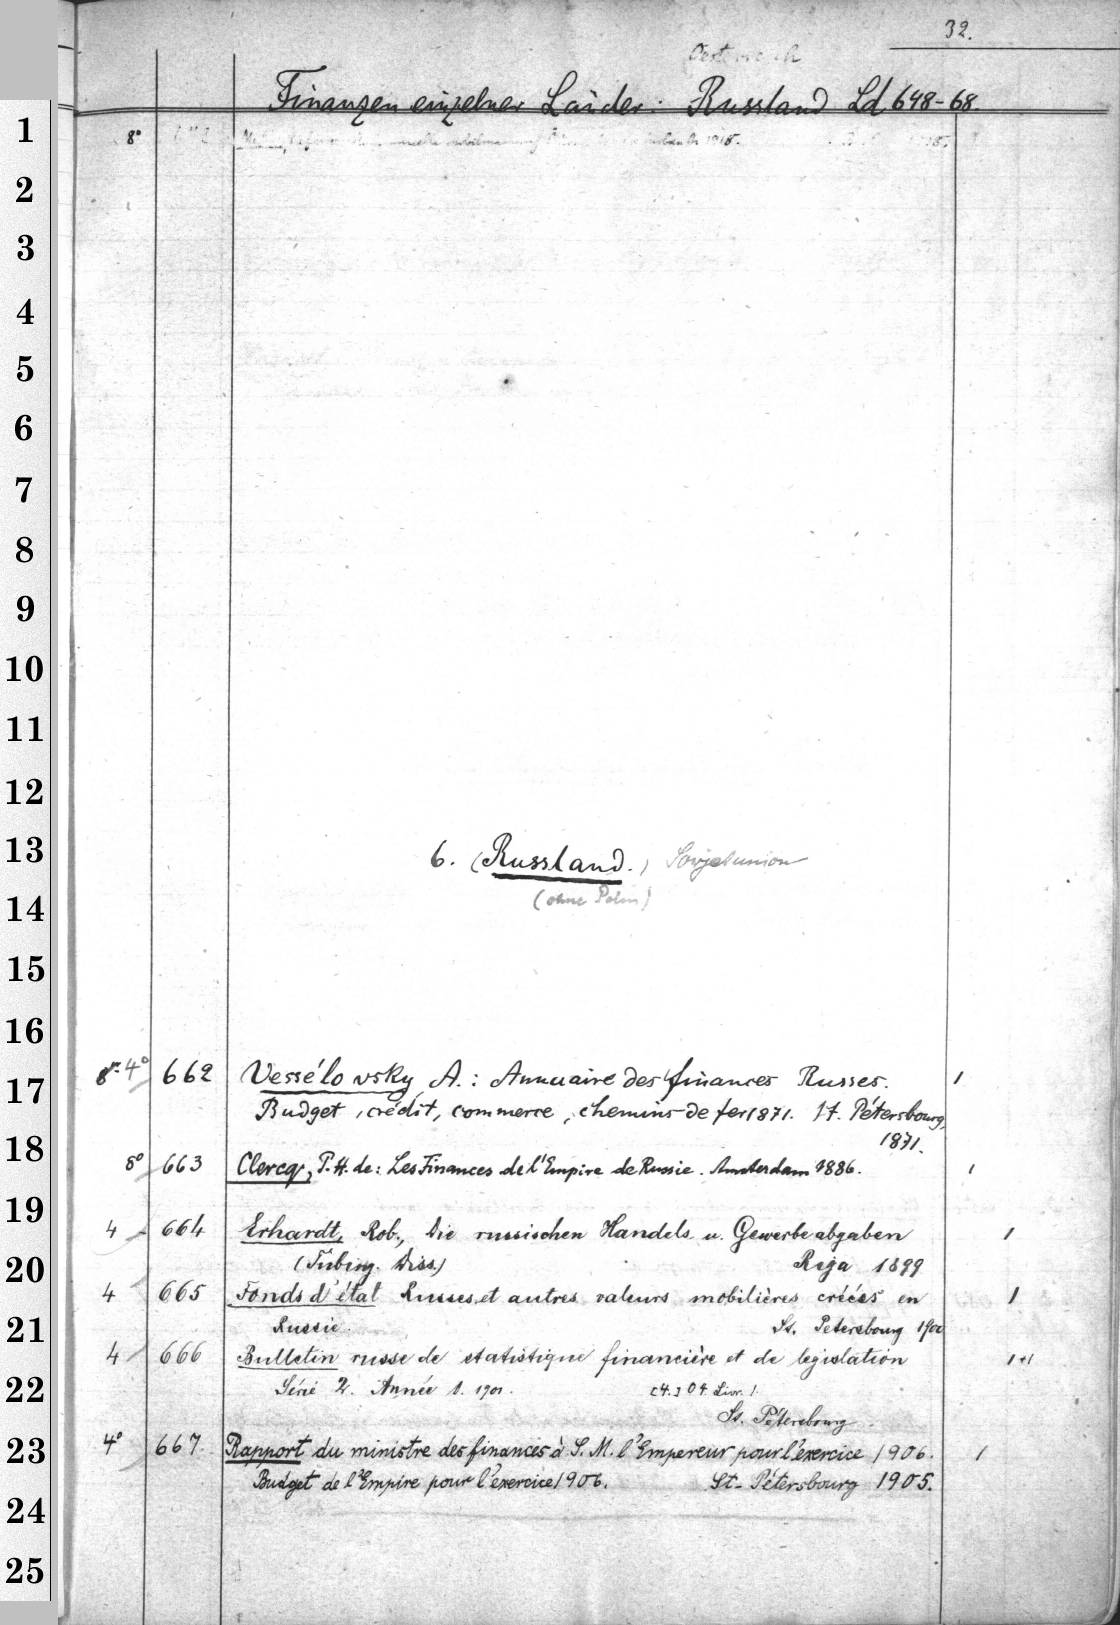 32.
Oesterreich
Finanzen einzelner Länder: Russland Ld 648-68.
1 8° 1918.
2
3
4
5
6
7
8
9
10
11
12
13 6. (Russland.) Sovjetunion
14 (ohne Polen)
15
16
17 8°. 4° 662 Vessélovsky A.: Annuaire des finances Russes. 1
Budget, crédit, commerce, chemins de fer 1871. St. Pétersbourg,
18 1871.
8° 663 Clercq, P. H. de: Les Finances de l'Empire de Russie. Amsterdam 1886. 1
19 4 664 Erhardt, Rob., Die russischen Handels u. Gewerbeabgaben 1
20 (Tübing. Diss.) Riga 1899
4 665 Fonds d'état Russes et autres valeurs mobilières créées en 1
21 Russie. St. Petersbourg 1900
4 666 Bulletin russe de statistique financière et de legislation 1+1
22 Série 2. Année 8. 1901. [4.] 04. Livr. 1.
St. Pétersbourg
23 4° 667. Rapport du ministre des finances à S. M. l'Empereur pour l'exercice 1906. 1
Budget de l'Empire pour l'exercice 1906. St-Pétersbourg 1905.
24
25